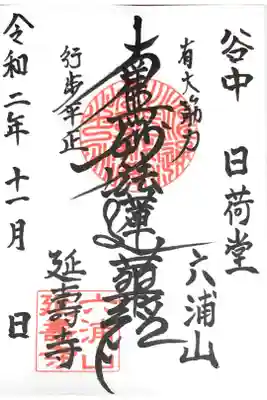 谷中 日荷堂
六浦山
有大筋力
南無妙法蓮華経
行歩平正
延壽寺
令和二年十一月 日
六浦山
延壽寺